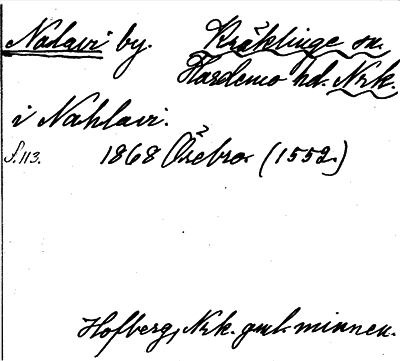 Nalavi by. Kräklinge sn.
Hardemo hd. Nrk.
i Nahlavi.
s. 113. 1868 Örebro (1552.)
Hofberg, Nrk. gml. minnen.